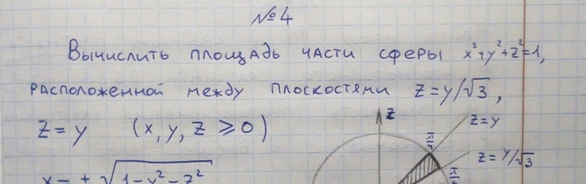 №4
Вычислить площадь части сферы x²+y²+z²=1,
расположенной между плоскостями z=y/√3,
z=y (x,y,z ≥ 0)
z
z=y
π/4
z=y/√3
x=±√1-y²-z²